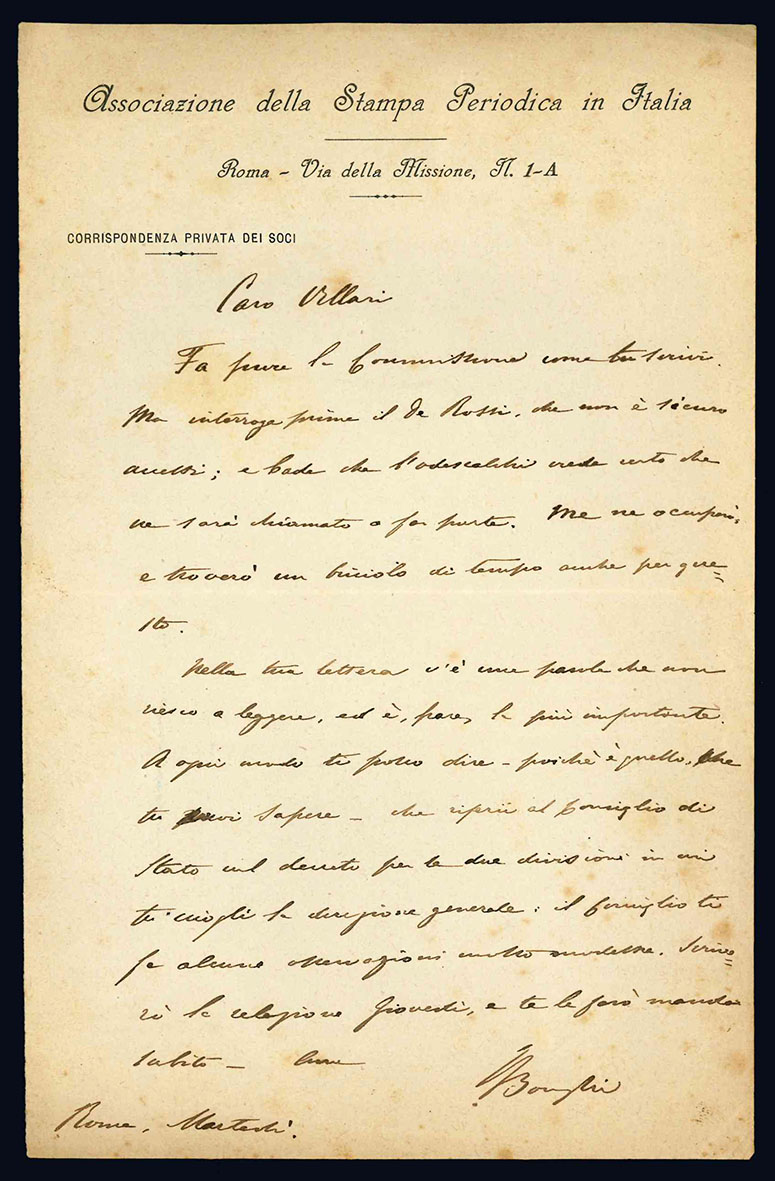 Associazione della Stampa Periodica in Italia
Roma - Via della Missione, N. 1-A
CORRISPONDENZA PRIVATA DEI SOCI
Caro Villari
Fa pure la Commissione come tu scrivi.
Ma interroga prima il De Rossi, che non è sicuro
accetti; e bada che l'Odescalchi crede certo che
ne sarà chiamato a far parte. Me ne occuperò,
e troverò un briciolo di tempo anche per que=
sto.
Nella tua lettera c'è una parola che non
riesco a leggere, ed è, pare, la più importante.
A ogni modo ti posso dire - poichè è quello, che
tu vuoi sapere - che riferii al Consiglio di
Stato sul decreto per le due divisioni in cui
tu sciogli la direzione generale: il Consiglio ti
fa alcune osservazioni molto modeste. Scrive=
rò la relazione Giovedì, e te la farò mandar
subito -
RBonghi
Roma, Martedì.